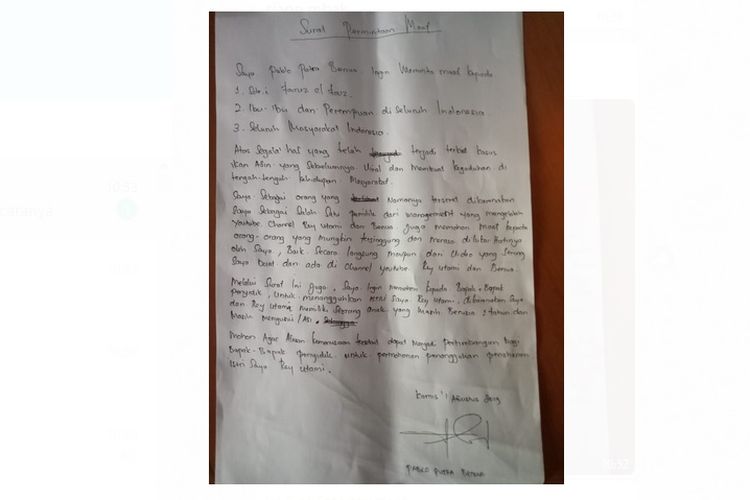 Surat Permintaan Maaf
Saya Pablo Putra Benua Ingin Meminta maaf kepada
1. Sdr.i Fairuz el Fouz.
2. Ibu-Ibu dan Perempuan di Seluruh Indonesia.
3. Seluruh Masyarakat Indonesia.
Atas Segala hal yang telah terjadi terkait kasus
Ikan Asin yang Sebelumnya Viral dan Membuat kegaduhan di
tengah-tengah kehidupan Masyarakat.
Saya Sebagai orang yang Namanya terseret dikarenakan
Saya Sebagai Salah Satu pemilik dari management yang mengelola
Youtube Channel Rey Utami dan Benua juga memohon Maaf kepada
orang-orang yang mungkin tersinggung dan merasa di
oleh Saya, Baik Secara langsung maupun dari Vidio yang Sering
Saya buat dan ada di Channel youtube Rey utami dan Benua.
Melalui Surat Ini juga, Saya Ingin memohon kepada Bapak-Bapak
Penyidik, Untuk menangguhkan istri Saya Rey Utami, dikarenakan Saya
dan Rey Utami memiliki Seorang anak yang Masih Berusia 1 tahun dan
Masih mengkonsumsi /Asi.
Mohon Agar Alasan kemanusiaan tersebut dapat Menjadi Pertimbangan bagi
Bapak-Bapak penyidik untuk permohonan penangguhan penahanan
Istri Saya Rey Utami.
Kamis 1 Agustus 2019
PABLO PUTRA BENUA
10:33
caranya
10:57